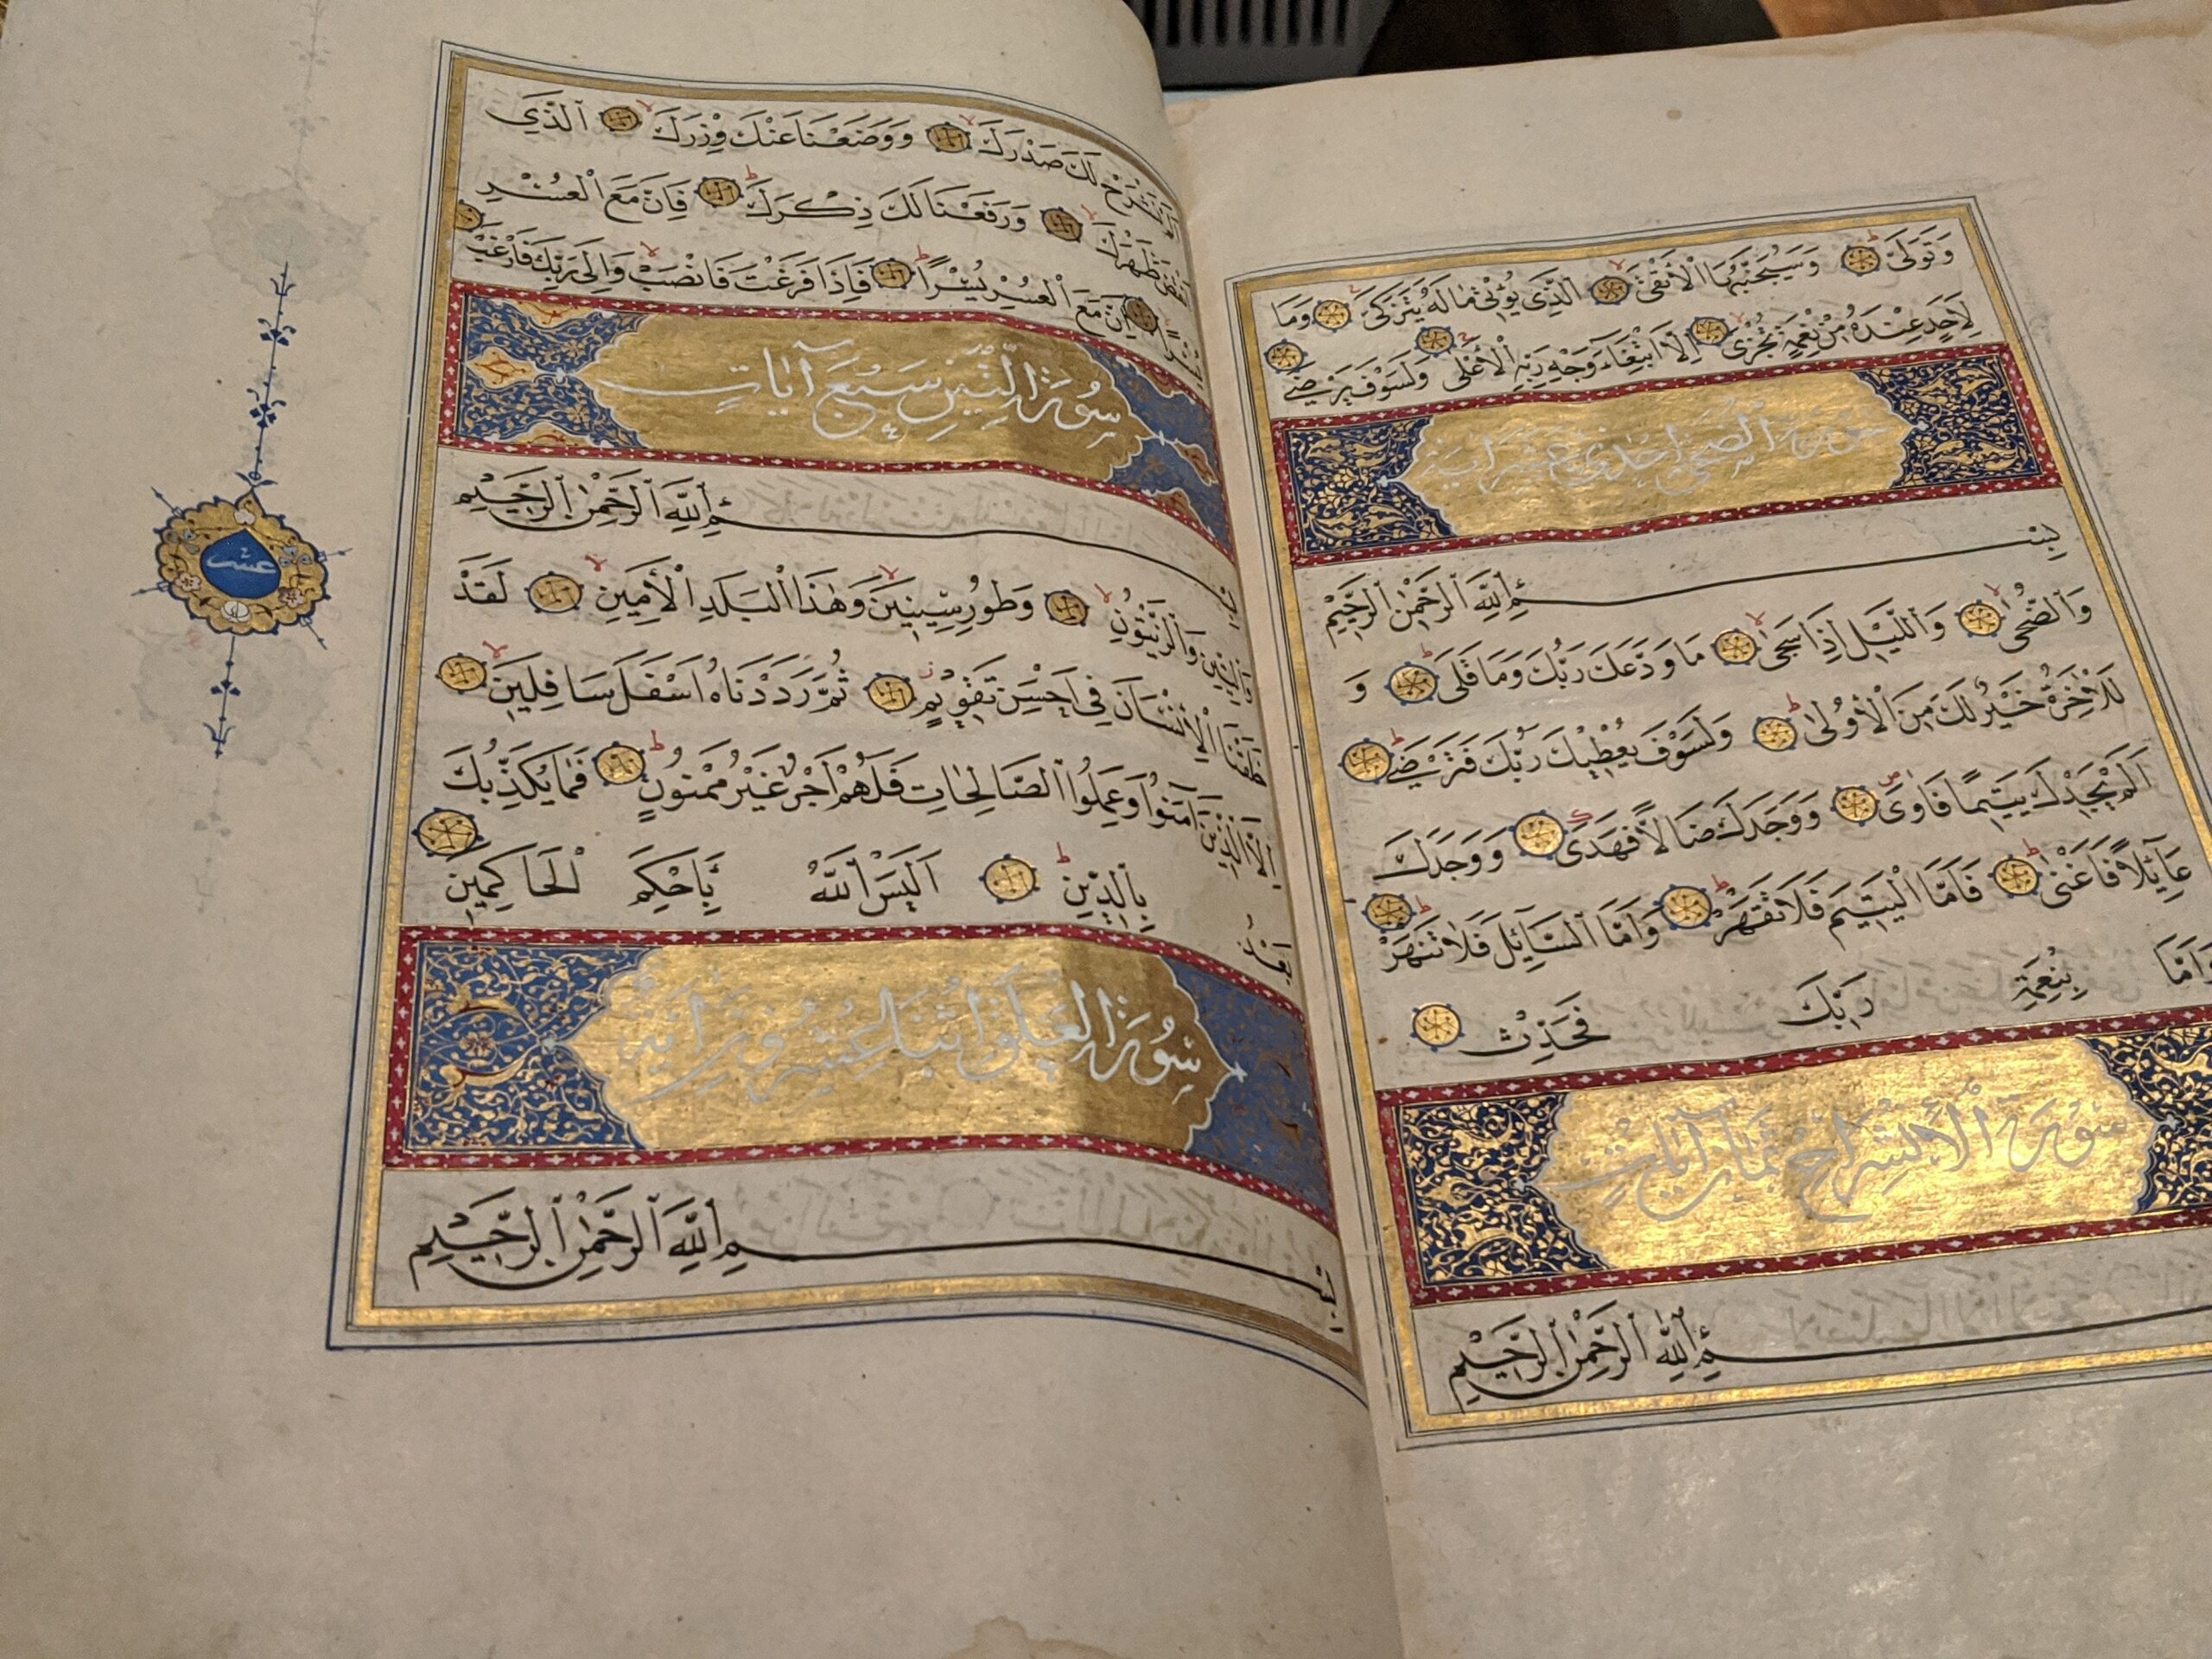 وَتَوَلّٰى وَسَيُجَنَّبُهَا الْاَتْقَى الَّذِى يُؤْتِى مَا لَهُ يَتَزَكّٰى وَمَا
لِاَحَدٍ عِنْدَهُ مِنْ نِعْمَةٍ تُجْزٰى اِلَّا ابْتِغَاءَ وَجْهِ رَبِّهِ الْاَعْلٰى وَلَسَوْفَ يَرْضٰى
سورة الضحى احدى عشر اية
بِسْمِ اللّٰهِ الرَّحْمٰنِ الرَّحِيْمِ
وَالضُّحٰى وَاللَّيْلِ اِذَا سَجٰى مَا وَدَّعَكَ رَبُّكَ وَمَا قَلٰى وَ
لَلْاٰخِرَةُ خَيْرٌ لَكَ مِنَ الْاُوْلٰى وَلَسَوْفَ يُعْطِيْكَ رَبُّكَ فَتَرْضٰى
اَلَمْ يَجِدْكَ يَتِيْمًا فَاٰوٰى وَوَجَدَكَ ضَالًّا فَهَدٰى وَوَجَدَكَ
عَائِلًا فَاَغْنٰى فَاَمَّا الْيَتِيْمَ فَلَا تَقْهَرْ وَاَمَّا السَّائِلَ فَلَا تَنْهَرْ
وَاَمَّا بِنِعْمَةِ رَبِّكَ فَحَدِّثْ
سُوْرَةُ الْاِنْشِرَاحِ ثَمَان آيَاتٍ
بِسْمِ اللّٰهِ الرَّحْمٰنِ الرَّحِيْمِ
اَلَمْ نَشْرَحْ لَكَ صَدْرَكَ وَوَضَعْنَا عَنْكَ وِزْرَكَ الَّذِي
اَنْقَضَ ظَهْرَكَ وَرَفَعْنَا لَكَ ذِكْرَكَ فَاِنَّ مَعَ الْعُسْرِ
يُسْرًا اِنَّ مَعَ الْعُسْرِ يُسْرًا فَاِذَا فَرَغْتَ فَانْصَبْ وَاِلٰى رَبِّكَ فَارْغَبْ
سُوْرَةُ التِّيْنِ سَبْعُ آيَاتٍ
بِسْمِ اللّٰهِ الرَّحْمٰنِ الرَّحِيْمِ
وَالتِّيْنِ وَالزَّيْتُوْنِ وَطُوْرِ سِيْنِيْنَ وَهٰذَا الْبَلَدِ الْاَمِيْنِ لَقَدْ
خَلَقْنَا الْاِنْسَانَ فِي اَحْسَنِ تَقْوِيْمٍ ثُمَّ رَدَدْنَاهُ اَسْفَلَ سَافِلِيْنَ
اِلَّا الَّذِيْنَ آمَنُوْا وَعَمِلُوا الصَّالِحَاتِ فَلَهُمْ اَجْرٌ غَيْرُ مَمْنُوْنٍ فَمَا يُكَذِّبُكَ
بَعْدُ بِالدِّيْنِ اَلَيْسَ اللّٰهُ بِاَحْكَمِ الْحَاكِمِيْنَ
سُوْرَةُ الْعَلَقِ
بِسْمِ اللّٰهِ الرَّحْمٰنِ الرَّحِيْمِ
عشر